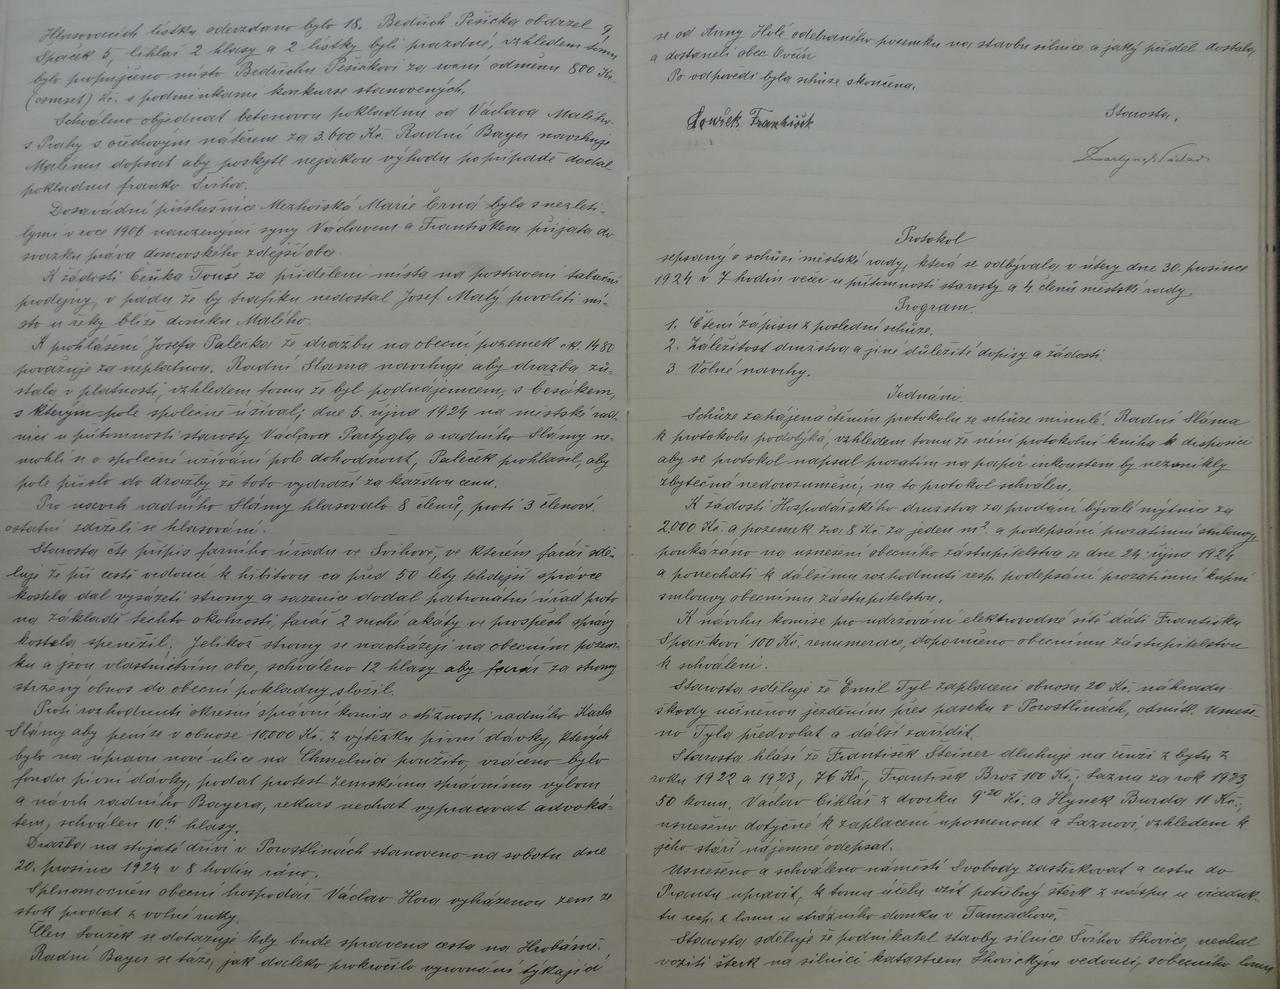 Hlasovacích lístku odevzdano bylo 18. Bedřich Pešička obdržel 9,
Spaček 5, Cihlař 2 hlasy a 2 lístky byli prazdné, vzhledem tomu
bylo propujčeno místo Bedřichu Pešičkovi za roční odměnu 800 Kč.
(osmset) Kč. s podmínkami konkurse stanovených.
Schváleno objednat betonovou pokladnu od Václava Malého
s Prahy s ořechovým nátěrem za 3.600 Kč. Radní Bayer navrhuje
Malému dopsat aby poskytl nejakou výhodu popřípadě dodal
pokladnu franko Švihov.
Dosavádní příslušnice Mezhoiská Marie Černá byla s nezleti-
lými v roce 1906 narozenými syny Václavem a Františkem přijata do
svazku práva domovského zdejší obce.
K žádosti Čeňka Touše za přidělení místa na postavení tabační
prodejny, v padu že by trafiku nedostal Josef Malý povoliti mí-
sto u řeky blíže domku Malého.
K prohlášení Josefa Palečka že dražbu na obecní pozemek čk. 1480
považuje za neplatnou. Radní Sláma navrhuje aby dražba zů-
stala v platnosti, vzhledem tomu že byl podnájemcem, s
s kterým pole společně užíval; dne 5. října 1924 na městské rad-
nici v přítomnosti starosty Václava Partygla a radního Slámy ne-
mohli se o společné užívání pole dohodnout, Paleček prohlasil, aby
pole přišlo do dražby že toto vydraží za každou cenu.
Pro návrh radního Slámy hlasovalo 8 členů, proti 3 členové
ostatní zdrželi se hlasování.
Starosta čte přípis farního úřadu ve Švihově, ve kterém farář sdě-
luje že při cestě vedoucí k hřbitovu ca před 50 lety tehdejší správce
kostela dal vysázeti stromy a sazenice dodal patronátní úřad proto
na základě těchto okolností farář 2 suché akáty ve prospěch správy
kostela zpeněžil. Jelikož stromy se nacházejí na obecním pozem-
ku a jsou vlastnictvím obce, schváleno 12 hlasy aby farář za stromy
stržený obnos do obecní pokladny složil.
Proti rozhodnutí okresní správní komise o stížnosti radního Karla
Slámy aby peníze v obnose 10.000 Kč. z výtěžku pivní dávky, kterých
bylo na úpravu nové ulice na Chmelnici použito, vráceno bylo
fondu pivní dávky, podat protest Zemskému správnímu výboru
a návrh radního Bayera, rekurs nechat vypracovat advoká-
tem, schválen 10ti hlasy.
Dražba na stojaté dříví v Porostlinách stanoveno na sobotu dne
20. prosince 1924 v 8 hodin ráno.
Splnomocněn obecní hospodář Václav Hora vykázenou zem ze
stok prodat z volné ruky.
Člen Loužek se dotazuje kdy bude spravena cesta na Hrobárně.
Radní Bayer se táže, jak daleko prokročilo vyrovnání týkající
se od Anny Holé odebraného pozemku na stavbu silnice a jaký příděl dostala
a dostaneli obec
Po odpovědi byla schůze skončena.
Starosta,
Loužek František
Protokol
sepsaný o schůzi městské rady, která se odbývala v úterý dne 30. prosince
1924 v 7 hodin večer u přítomnosti starosty a 4 členů městské rady.
Program.
1. Čtení zápisu z poslední schůze.
2. Záležitost družstva a jiné důležité dopisy a žádosti.
3. Volné navrhy.
Jednání.
Schůze zahájena čtením protokolu ze schůze minulé. Radní Sláma
k protokolu podotýká, vzhledem tomu že není protokolní kniha k disposici
aby se protokol napsal prozatím na papír inkoustem by nezanikly
zbytečná nedorozumění; na to protokol schválen.
K žádosti Hospodářského družstva za prodání bývalé mýtnice za
2000 Kč. a pozemek za 8 Kč. za jeden m². a podepsání prozatimní smlouvy
poukázano na usnesení obecního zástupitelstva ze dne 24. října 1924
a ponechati k dálšímu rozhodnutí resp. podepsání prozatimní kupní
smlouvy obecnímu zástupitelstvu.
K návrhu komise pro udržování elektrovodné sítě dáti Františku
Spačkovi 100 Kč. renumerace, doporučeno obecnímu zástupitelstvu
k schválení.
Starosta sděluje že Emil Tyl zaplacení obnosu 20 Kč. náhradu
škody učiněnou jezděním přes paseku v Porostlinách, odmítl. Usneše-
no Tyla předvolat a dálší zařídit.
Starosta hlásí že František Steiner dluhuje na činži z bytu z
roku 1922 a 1923, 76 Kč., František Brož 100 Kč., Lazna za rok 1923,
50 korun. Václav Cikláš z dvorku 9·20 Kč. a Hynek Burda 11 Kč.,
usnešeno dotyčné k zaplacení upomenout a Laznovi, vzhledem k
jeho stáří nájemné odepsat.
Usnešeno a schváleno náměstí Svobody zaštěrkovat a cestu do
Prantu upravit, k tomu účelu vzít potřebný štěrk z náspu u viaduk-
tu resp. z lomu u strážního domku v Tamachově.
Starosta sděluje že podnikatel stavby silnice Švihov Lhovice, nechal
voziti štěrk na silnici katastrem Lhovickým vedoucí, s obecního lomu